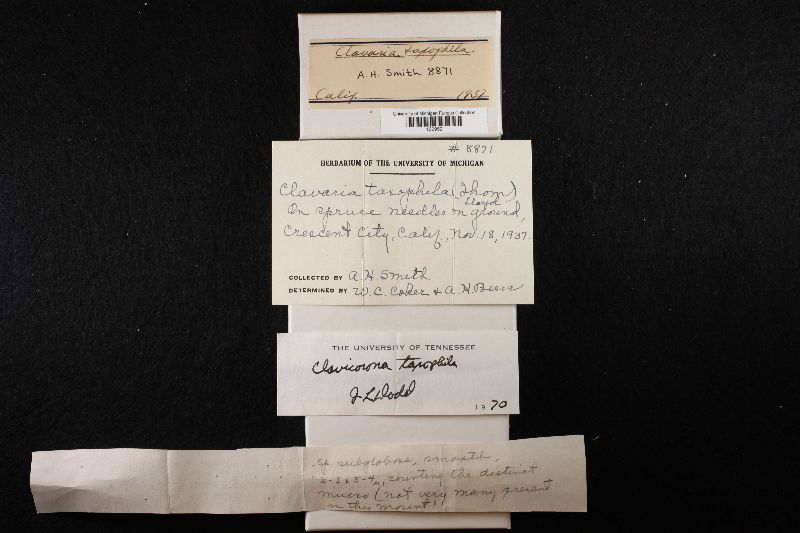 Clavaria taxophila.
A. H. Smith 8871
Calif. 1937
University of Michigan Fungus Collection
# 8871
HERBARIUM OF THE UNIVERSITY OF MICHIGAN
Clavaria taxophila (Thom)
Lloyd
On spruce needles on ground,
Crescent City, Calif., Nov. 18, 1937.
COLLECTED BY A. H Smith
DETERMINED BY W. C. Coker & A. H. Beers
THE UNIVERSITY OF TENNESSEE
Clavicorona taxophila
J L Dodd
1970
Sp. subglobose, smooth,
3-4 counting the distinct
mucro (not very many present
in this mount)